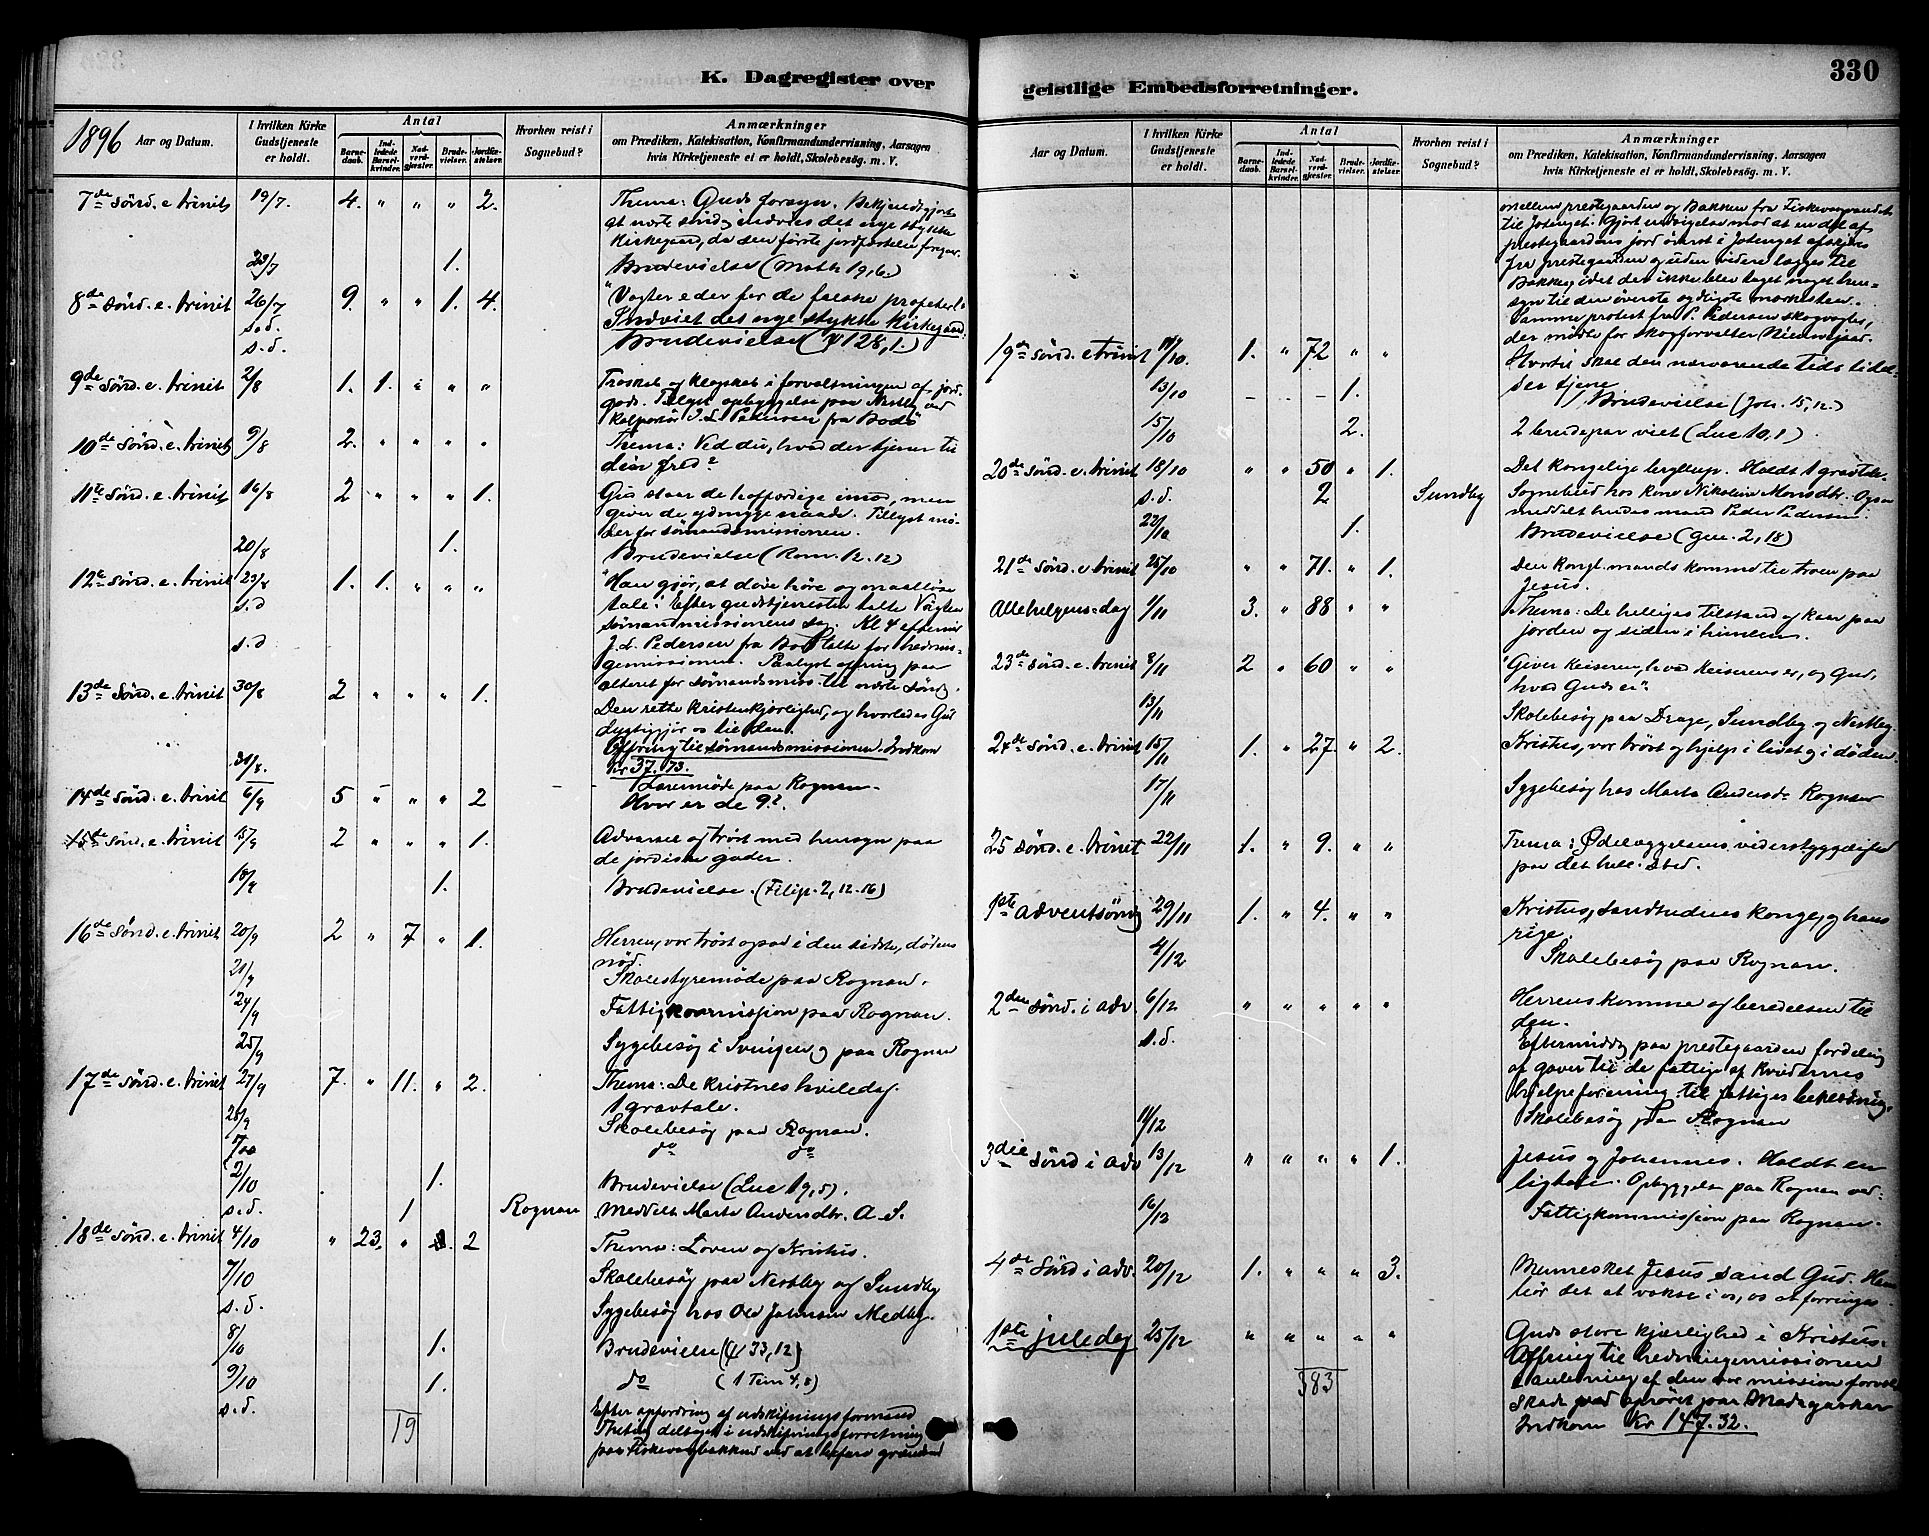 K. Dagregister over
1896 Aar og Datum.
I hvilken Kirke Gudstjeneste er holdt.
Antal
Barnedaab.
Indledede Barselkvinder.
Nadverdgjester.
Brudevielser.
Jordfæstelser.
Hvorhen reist i Sognebud?
Anmærkninger
om Prædiken, Katekisation, Konfirmandundervisning, Aarsagen
hvis Kirketjeneste ei er holdt, Skolebesøg. m. V.
7de sönd. e. trinit 19/7. 4. " " " 2. Thema: Guds forsyn. Bekjendtgjort
at næste söndag indvies det nye stykke
kirkegaard, da den förste jordfæstelse foregaar.
23/7 1. Brudevielse (Math 19,6.)
8de sönd. e. trinit 26/7 9. " " 1. 4. "Vogter eder for de falske profeter!"
s.d. Indviet det nye stykke kirkegaard
s.d. Brudevielse (ψ 128,1.)
9de sönd. e. trinit 2/8 1. 1. " " " Troskab og klogskab i forvaltningen af jord.
gods. Tillyst opbyggelse paa Nestby ved
kolportör J. L. Pedersen fra Bodö
10de sönd. e. trinit 9/8 2. " " " " Thema: Ved du, hvad der tjener til
din fred?
11te sönd. e. trinit 16/8 2 " " " 1. Gud staar de hoffærdige imod, men
giver de ydmyge naade. Tillyst mö-
der for sömandsmissionen.
20/8 1. Brudevielse (Rom. 12.12)
12te sönd. e. trinit 23/8 1. 1. " " " "Han gjör, at döve höre og maallöse
s.d tale". Efter gudstjenesten talte
sömandsmissionens sag. Kl 4 efterm
s.d J. L. Pedersen fra Bodö talte for hednin-
gemissionen. Paalyst ofring paa
alteret for sömandsmiss. til næste sönd.
13de sönd. e. trinit 30/8 2 " " " 1. Den rette kristenkjærlighed, og hvorledes Gud
dygtiggjör os til den.
Ofring til sömandsmissionen. Indkom
Kr 37.73.
31/8. Læremöde paa Rognan.
14de sönd. e. trinit 6/9 5 " " " 2 Hvor er de 9?
15de sönd. e. trinit 13/9 2 " " " 1. Advarsel og tröst med hensyn paa
de jordiske goder.
18/9 1. Brudevielse. (Filip. 2, 12-16)
16de sönd. e. trinit 20/9 2 " 7 " 1. Herren, vor tröst ogsaa i den sidste, dödens
nöd.
21/9 Skolestyremöde paa Rognan.
24/9 Fattigkommission paa Rognan.
25/9 Sygebesög i og paa Rognan
17de sönd. e. trinit 27/9 7. " 11. " 2. Thema: De kristnes hviledag.
1 gravtale.
28/9 Skolebesög paa Rognan.
do do
2/10 1. Brudevielse (Luc 19,5).
s.d. 1 Rognan Meddelt Marta Andersdtr. A. S.
18de sönd. e. trinit 4/10 " 23. " 2 Thema: Loven og Kristus.
7/10 Skolebesög paa Nestby og Sundby
s.d. Sygebesög hos Ole Johnsen Medby.
8/10 1. Brudevielse (ψ 33,12)
9/10 1. do (1 Tim 4,8)
s.d. Efter opfordring af udskiftningsformand
deltaget i udskiftningsforretning
paa ved at befare grændsen
19
geistlige Embedsforretninger.
330
Aar og Datum.
I hvilken Kirke Gudstjeneste er holdt.
Antal
Barnedaab.
Indledede Barselkvinder.
Nadverdgjester.
Brudevielser.
Jordfæstelser.
Hvorhen reist i Sognebud?
Anmærkninger
om Prædiken, Katekisation, Konfirmandundervisning, Aarsagen
hvis Kirketjeneste ei er holdt, Skolebesøg. m. V.
mellem prestegaarden og Bakken fra Fiskevaagvandet
til Gjort indsigelse mod at en del af
prestegaardens jord överst i afskjæres
fra prestegaarden og uden videre lægges til
Bakken, idet der ikke blev taget noget hen-
syn til den överste mærkesten.
Samme protest fra P. Pedersen skogvogter,
der mödte for skogforvalter
19de sönd. e. trinit 11/10. 1. " 72 " " Hvortil skal den nærværende tids lidel-
ser tjene
13/10 1. Brudevielse (Joh. 15,12.)
15/10 2. 2 brudepar viet (Luc 10,1).
20de sönd. e. trinit 18/10 " " 50 " 1. Det kongelige bryllup. Holdt 1 gravtale.
s.d. 2 Sundby Sognebud hos kone Nikoline Monsdtr. Ogsaa
meddelt hendes mand Peder Pedersen.
22/10 1. Brudevielse (gen. 2, 18)
21de sönd. e. trinit 25/10 " " 71. " 1. Den kongl. mands komme til troen paa
Jesus.
Allehelgensdag 1/11 3. " 88 " " Thema: De helliges tilstand og kaar paa
jorden og siden i himlen.
23de sönd. e. trinit 8/11 2 " 60 " " "Giver keiseren, hvad keiserens er, og Gud,
hvad Guds er".
13/11 Skolebesög paa Drage, Sundby og Nestby.
24de sönd. e. trinit 15/11 1. " 27. " 2. Kristus, vor tröst og hjelp i livet og i döden.
17/11 Sygebesög hos Marta Andersdr. Rognan
25 sönd. e. trinit 22/11 1. " 9. " " Tema: Ödelæggelsens vederstyggelighed
paa det hell. sted.
1ste adventsönd 29/11 1. " 4. " " Kristus, sandhedens konge, og hans
rige.
4/12 Skolebesög paa Rognan.
2den sönd. i adv. 6/12 " " " " " Herrens komme og beredelsen til
den.
s.d. Eftermiddag paa prestegaarden fordeling
af gaver til de fattige af Kvindernes
hjelpeforening til fattiges beklædning.
11/12 Skolebesög paa Rognan
3die sönd i adv 13/12 " " " " 1. Jesus og Johannes. Holdt en
ligtale. Opbyggelse paa Rognan
16/12 Fattigkommission paa Rognan.
4de sönd i adv. 20/12 1. " " " 3. Mennesket Jesus, sand Gud. Ham
bör det at vokse i os, os at forringes.
1ste juledag 25/12 " " " " " Guds store kjærlighed i Kristus.
Offring til hedningemissionen
i anledning af den vor mission forvoldte
skade ved opröret paa Madagaskar
Indkom Kr 147.32.
383